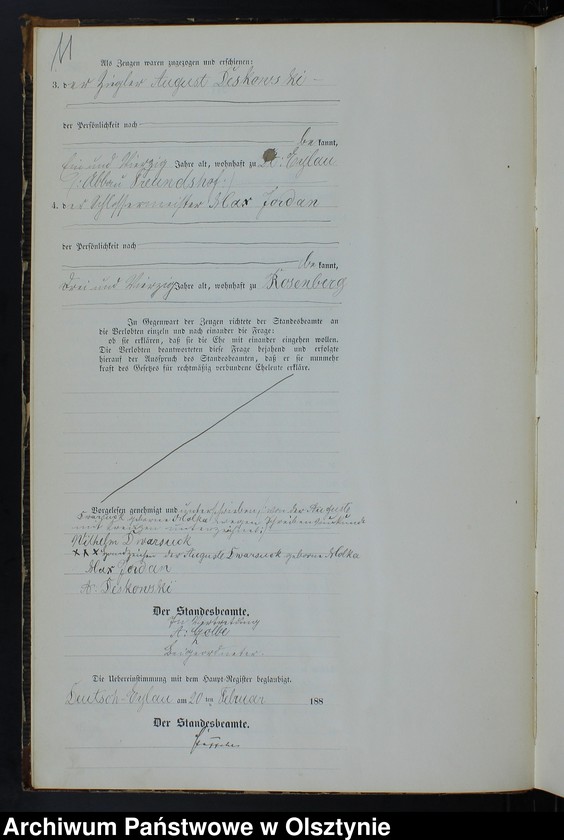 11
Als Zeugen waren zugezogen und erschienen:
3. der Ziegler August Deskowski
der Persönlichkeit nach
be kannt,
ein und Vierzig Jahre alt, wohnhaft zu Dt: Eylau
(: Abbau Freundshof :)
4. der Schlossermeister Max Jordan
der Persönlichkeit nach
be kannt,
drei und Vierzig Jahre alt, wohnhaft zu Rosenberg
In Gegenwart der Zeugen richtete der Standesbeamte an
die Verlobten einzeln und nach einander die Frage:
ob sie erklären, daß sie die Ehe mit einander eingehen wollen.
Die Verlobten beantworteten diese Frage bejahend und erfolgte
hierauf der Ausspruch des Standesbeamten, daß er sie nunmehr
kraft des Gesetzes für rechtmäßig verbundene Eheleute erkläre.
Vorgelesen genehmigt und unterschrieben, von der Auguste
Dwarsuck geborne Molka wegen Schreibensunkunde
mit Kreuzen unterzeichnet.
Wilhelm Dwarsuck
xxx Handzeichen der Auguste Dwarsuck geborne Molka
Max Jordan
A: Deskowski
Der Standesbeamte.
In Vertretung
A: Golbe
Beigeordneter.
Die Uebereinstimmung mit dem Haupt-Register beglaubigt.
Deutsch-Eylau am 20 ten Februar 188
Der Standesbeamte.
Archiwum Państwowe w Olsztynie